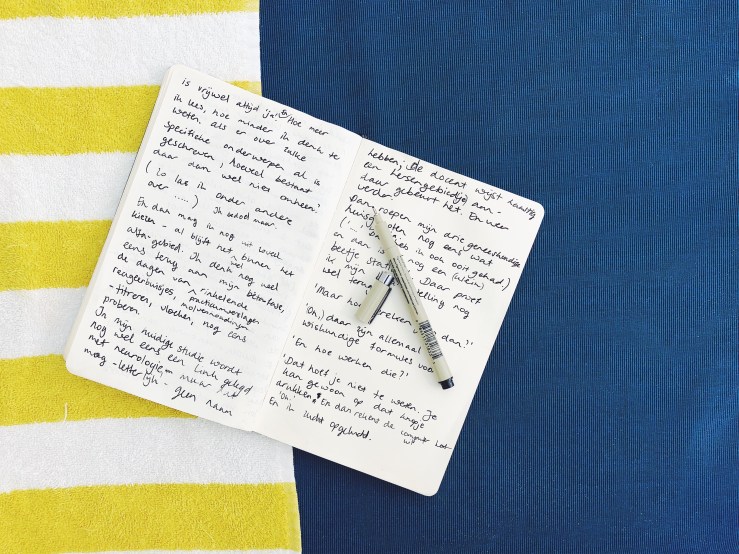 is vrijwel altijd 'ja'. Hoe meer
ik lees, hoe minder ik denk te
weten. als er over zulke
specifieke onderwerpen al is
geschreven, hoeveel bestaat
daar dan wel niet omheen?
(Zo las ik onder andere
over .....) Ik bedoel maar.
En dan mag ik nog uit zoveel
kiezen - al blijft het binnen het
alfa-gebied. Ik denk nog wel
eens terug aan mijn bètafase,
de dagen van rinkelende
reageerbuisjes, practicumverslagen
-titreren, vloeken, nog eens
proberen.
In mijn huidige studie wordt
nog wel eens een link gelegd
met neurologie - maar dat
mag -letterlijk- geen naam
hebben; de docent wijst haastig
een hersengebiedje aan -
daar gebeurt het. En weer
verder.
Dan roepen mijn drie geneeskundige
huisgenoten nog eens wat
heb ik ook ooit gehad)
en dan is er nog een (klein)
beetje Daar proef
ik mijn stelling nog
wel
'Maar hoe dan?'
'Oh, daar zijn allemaal
wiskundige formules voor
'En hoe werken die?'
'Dat hoef je niet te weten. Je
kan gewoon op dat knopje
drukken. En dan rekent de computer het
'Oh.'
En ik lucht opgelucht.